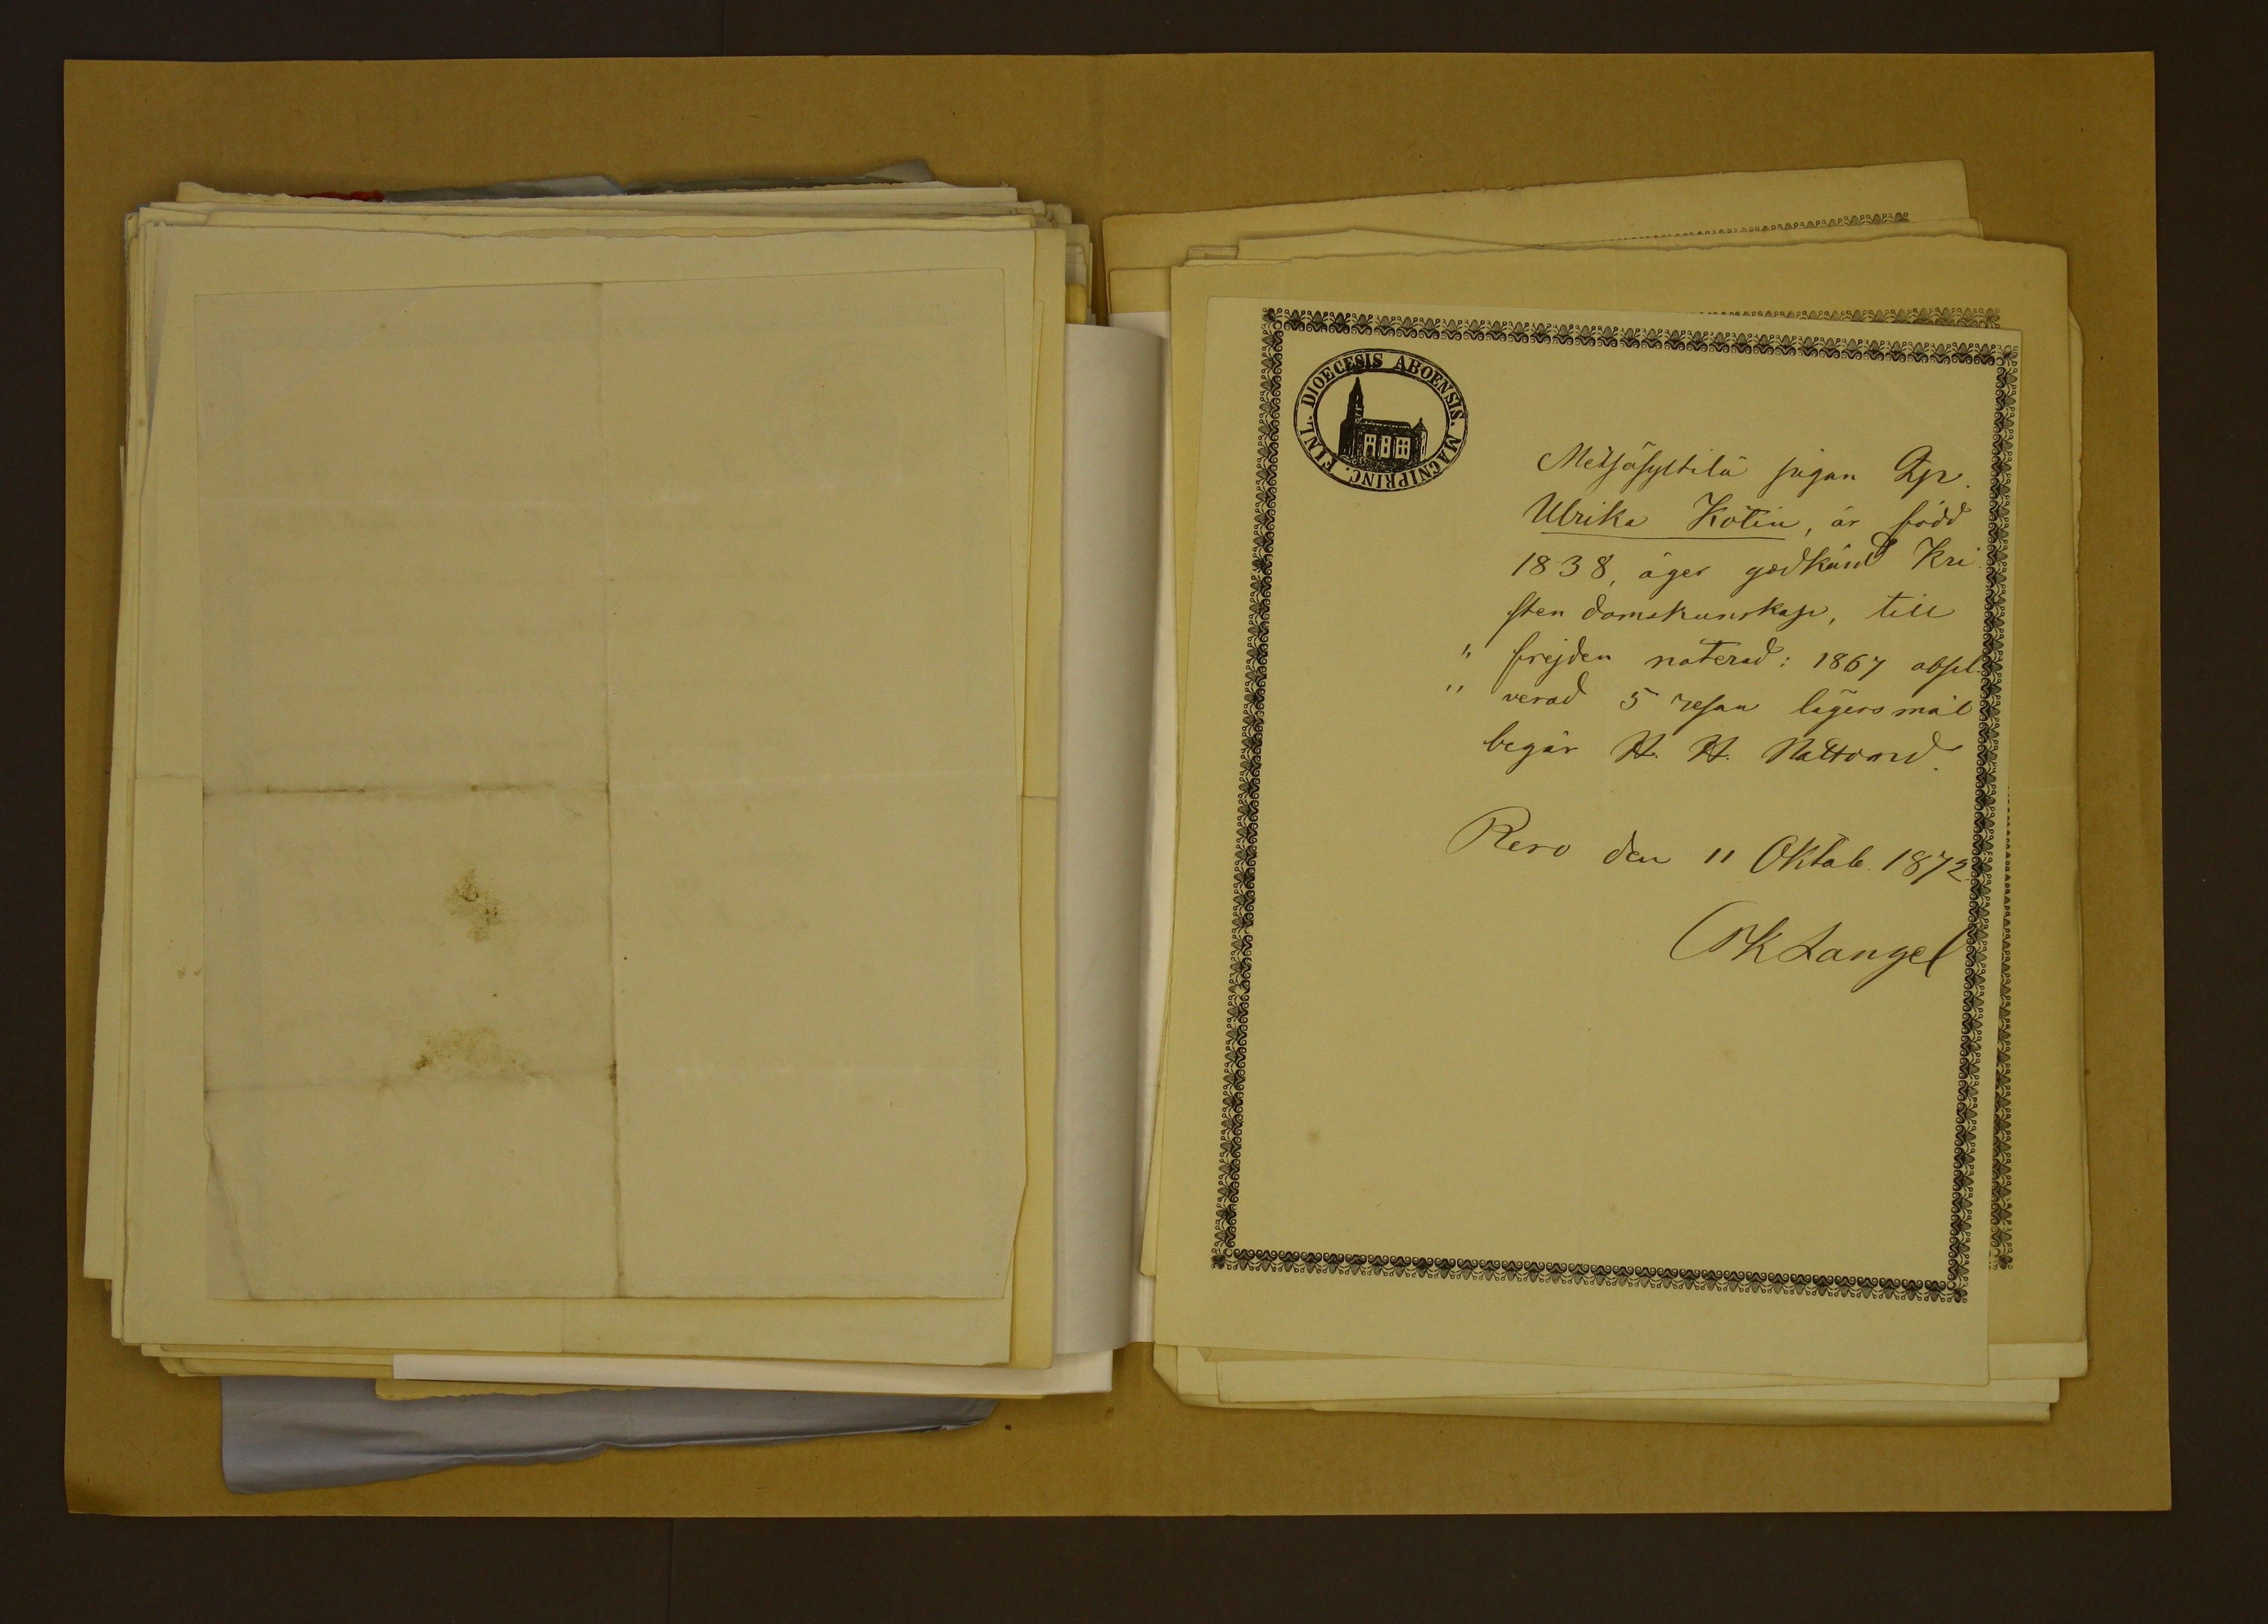 DIOECESIS ABOENSIS. MAGNIPRINC. FINL.
pigan
Ulrika Kötin, är född
1838, äger godkänd Kri
sten domskunskap, till
" frejden noterad: 1867 absol
" verad 5 resan lägersmål
begär H. H. Nattvard.
Rero den 11 Oktob. 1872
Langel